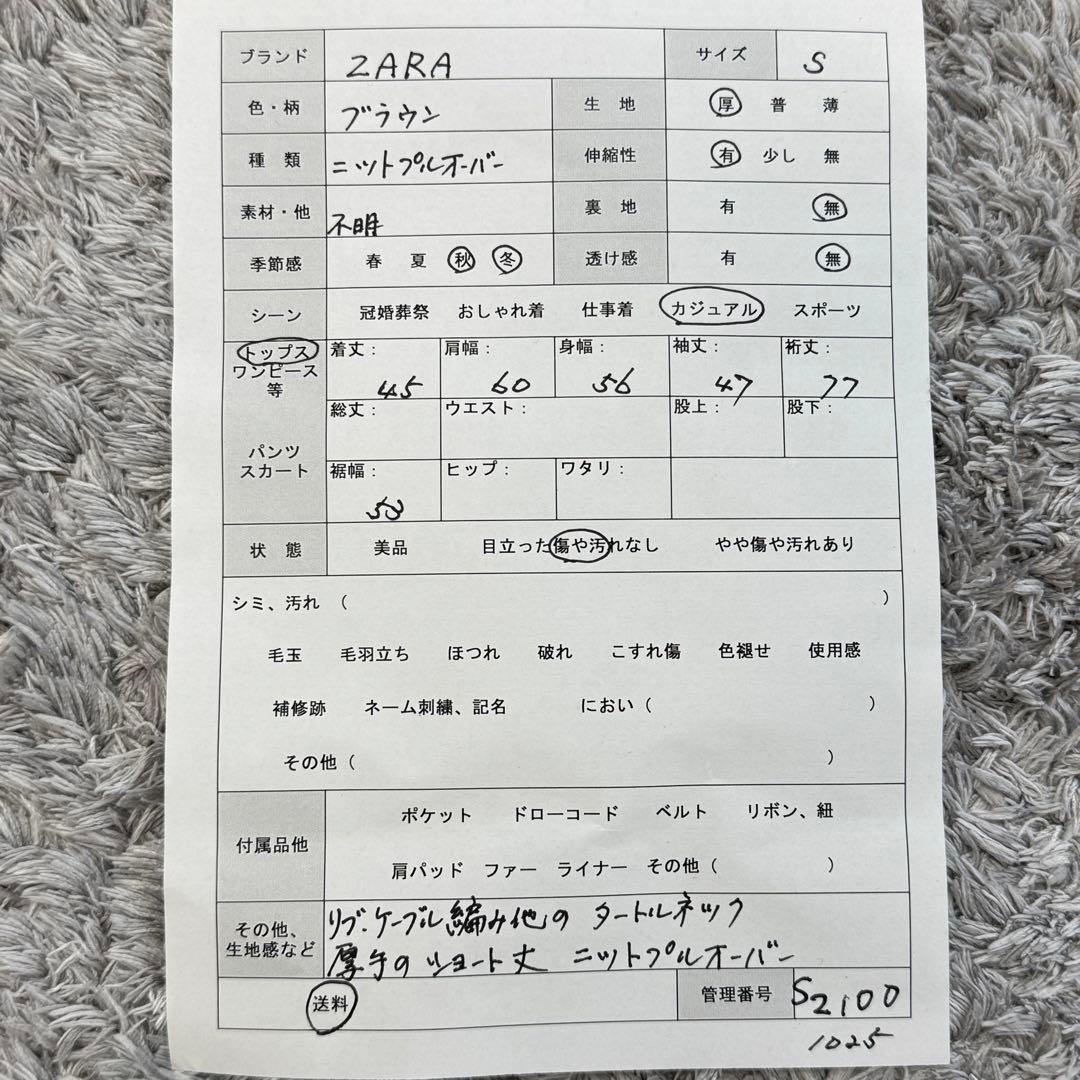 ブランド ZARA サイズ S
色・柄 ブラウン 生 地 厚 普 薄
種 類 ニットプルオーバー 伸縮性 有 少し 無
素材・他 不明 裏 地 有 無
季節感 春 夏 秋 冬 透け感 有 無
シーン 冠婚葬祭 おしゃれ着 仕事着 カジュアル スポーツ
トップス 着丈： 肩幅： 身幅： 袖丈： 裄丈：
ワンピース
等 45 60 56 47 77
総丈： ウエスト： 股上： 股下：
パンツ
スカート 裾幅： ヒップ： ワタリ：
53
状 態 美品 目立った傷や汚れなし やや傷や汚れあり
シミ、汚れ （ ）
毛玉 毛羽立ち ほつれ 破れ こすれ傷 色褪せ 使用感
補修跡 ネーム刺繍、記名 におい（ ）
その他（ ）
ポケット ドローコード ベルト リボン、紐
付属品他
肩パッド ファー ライナー その他（ ）
その他、 リブ.ケーブル編み地の タートルネック
生地感など 厚手のショート丈 ニットプルオーバー
送料 管理番号 S2100
1025